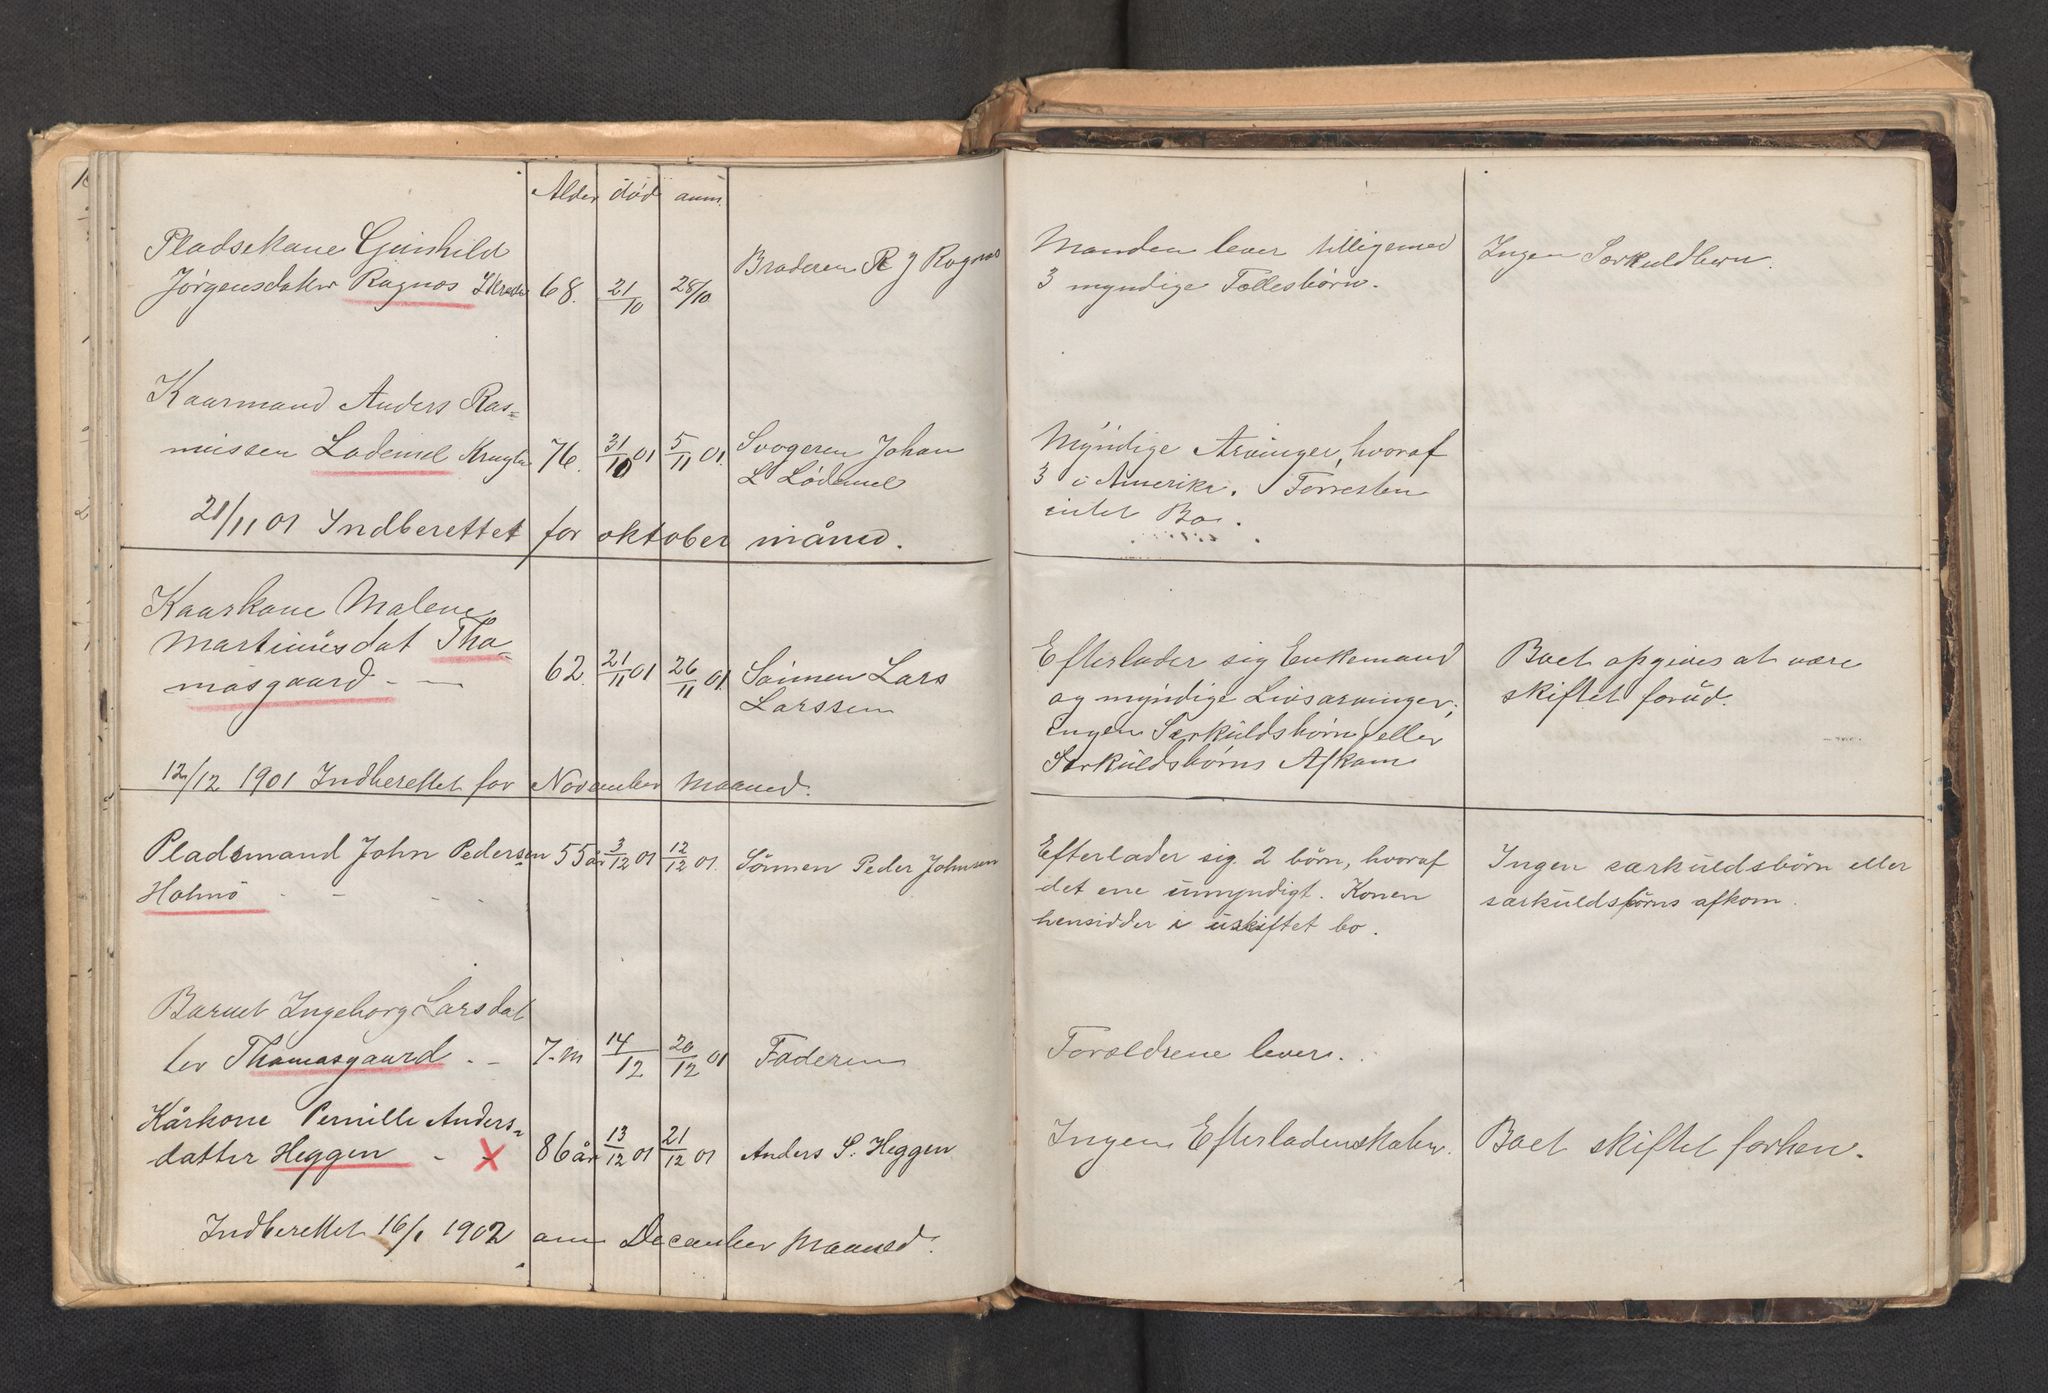 Alder død anm.
Pladsekone Gunhild
Jørgensdatter Ragnos 68. 21/10 28/10 Broderen R J Ragnos
Manden lever tilligemed
3 myndige Fællesbørn.
Ingen Særkuldbørn.
Kaarmand Anders Ras=
mussen Lødemel 76. 31/10 01 5/11 01. Svogeren Johan
L Lødemel
Myndige Arvinger, hvoraf
3 i Amerika. Forresten
intet Bo.
21/11 01 Indberettet for oktober måned.
Kaarkone Malene
Martinusdat Tho=
masgaard - — 62. 21/11 01 26/11 01. Sønnen Lars
Larssen
Efterlader sig Enkemand
og myndige Livsarvinger;
ingen Særkuldsbørn eller
Særkuldsbørns Afkom
Boet opgives at være
skiftet forud.
12/12 1901 Indberettet for November Maaned.
Pladsmand John Pedersen 55 år 3/12 01 12/12 01. Sønnen Peder Johnsen
Holmø - - - -
Efterlader sig 2 børn, hvoraf
det ene umyndigt. Konen
hensidder i uskiftet bo.
Ingen særkuldsbørn eller
særkuldsbørns afkom.
Barnet Ingeborg Larsdat
ter Thomasgaard - - 7-m 14/12 20/12 01 Faderen
Forældrene lever.
Kårkone Pernille Anders=
datter Heggen - - X 86 år 13/12 01 21/12 01 Anders S. Heggen
Ingen Efterladenskaber.
Boet skiftet forhen.
Indberettet 16/1 1902 om December Maaned.